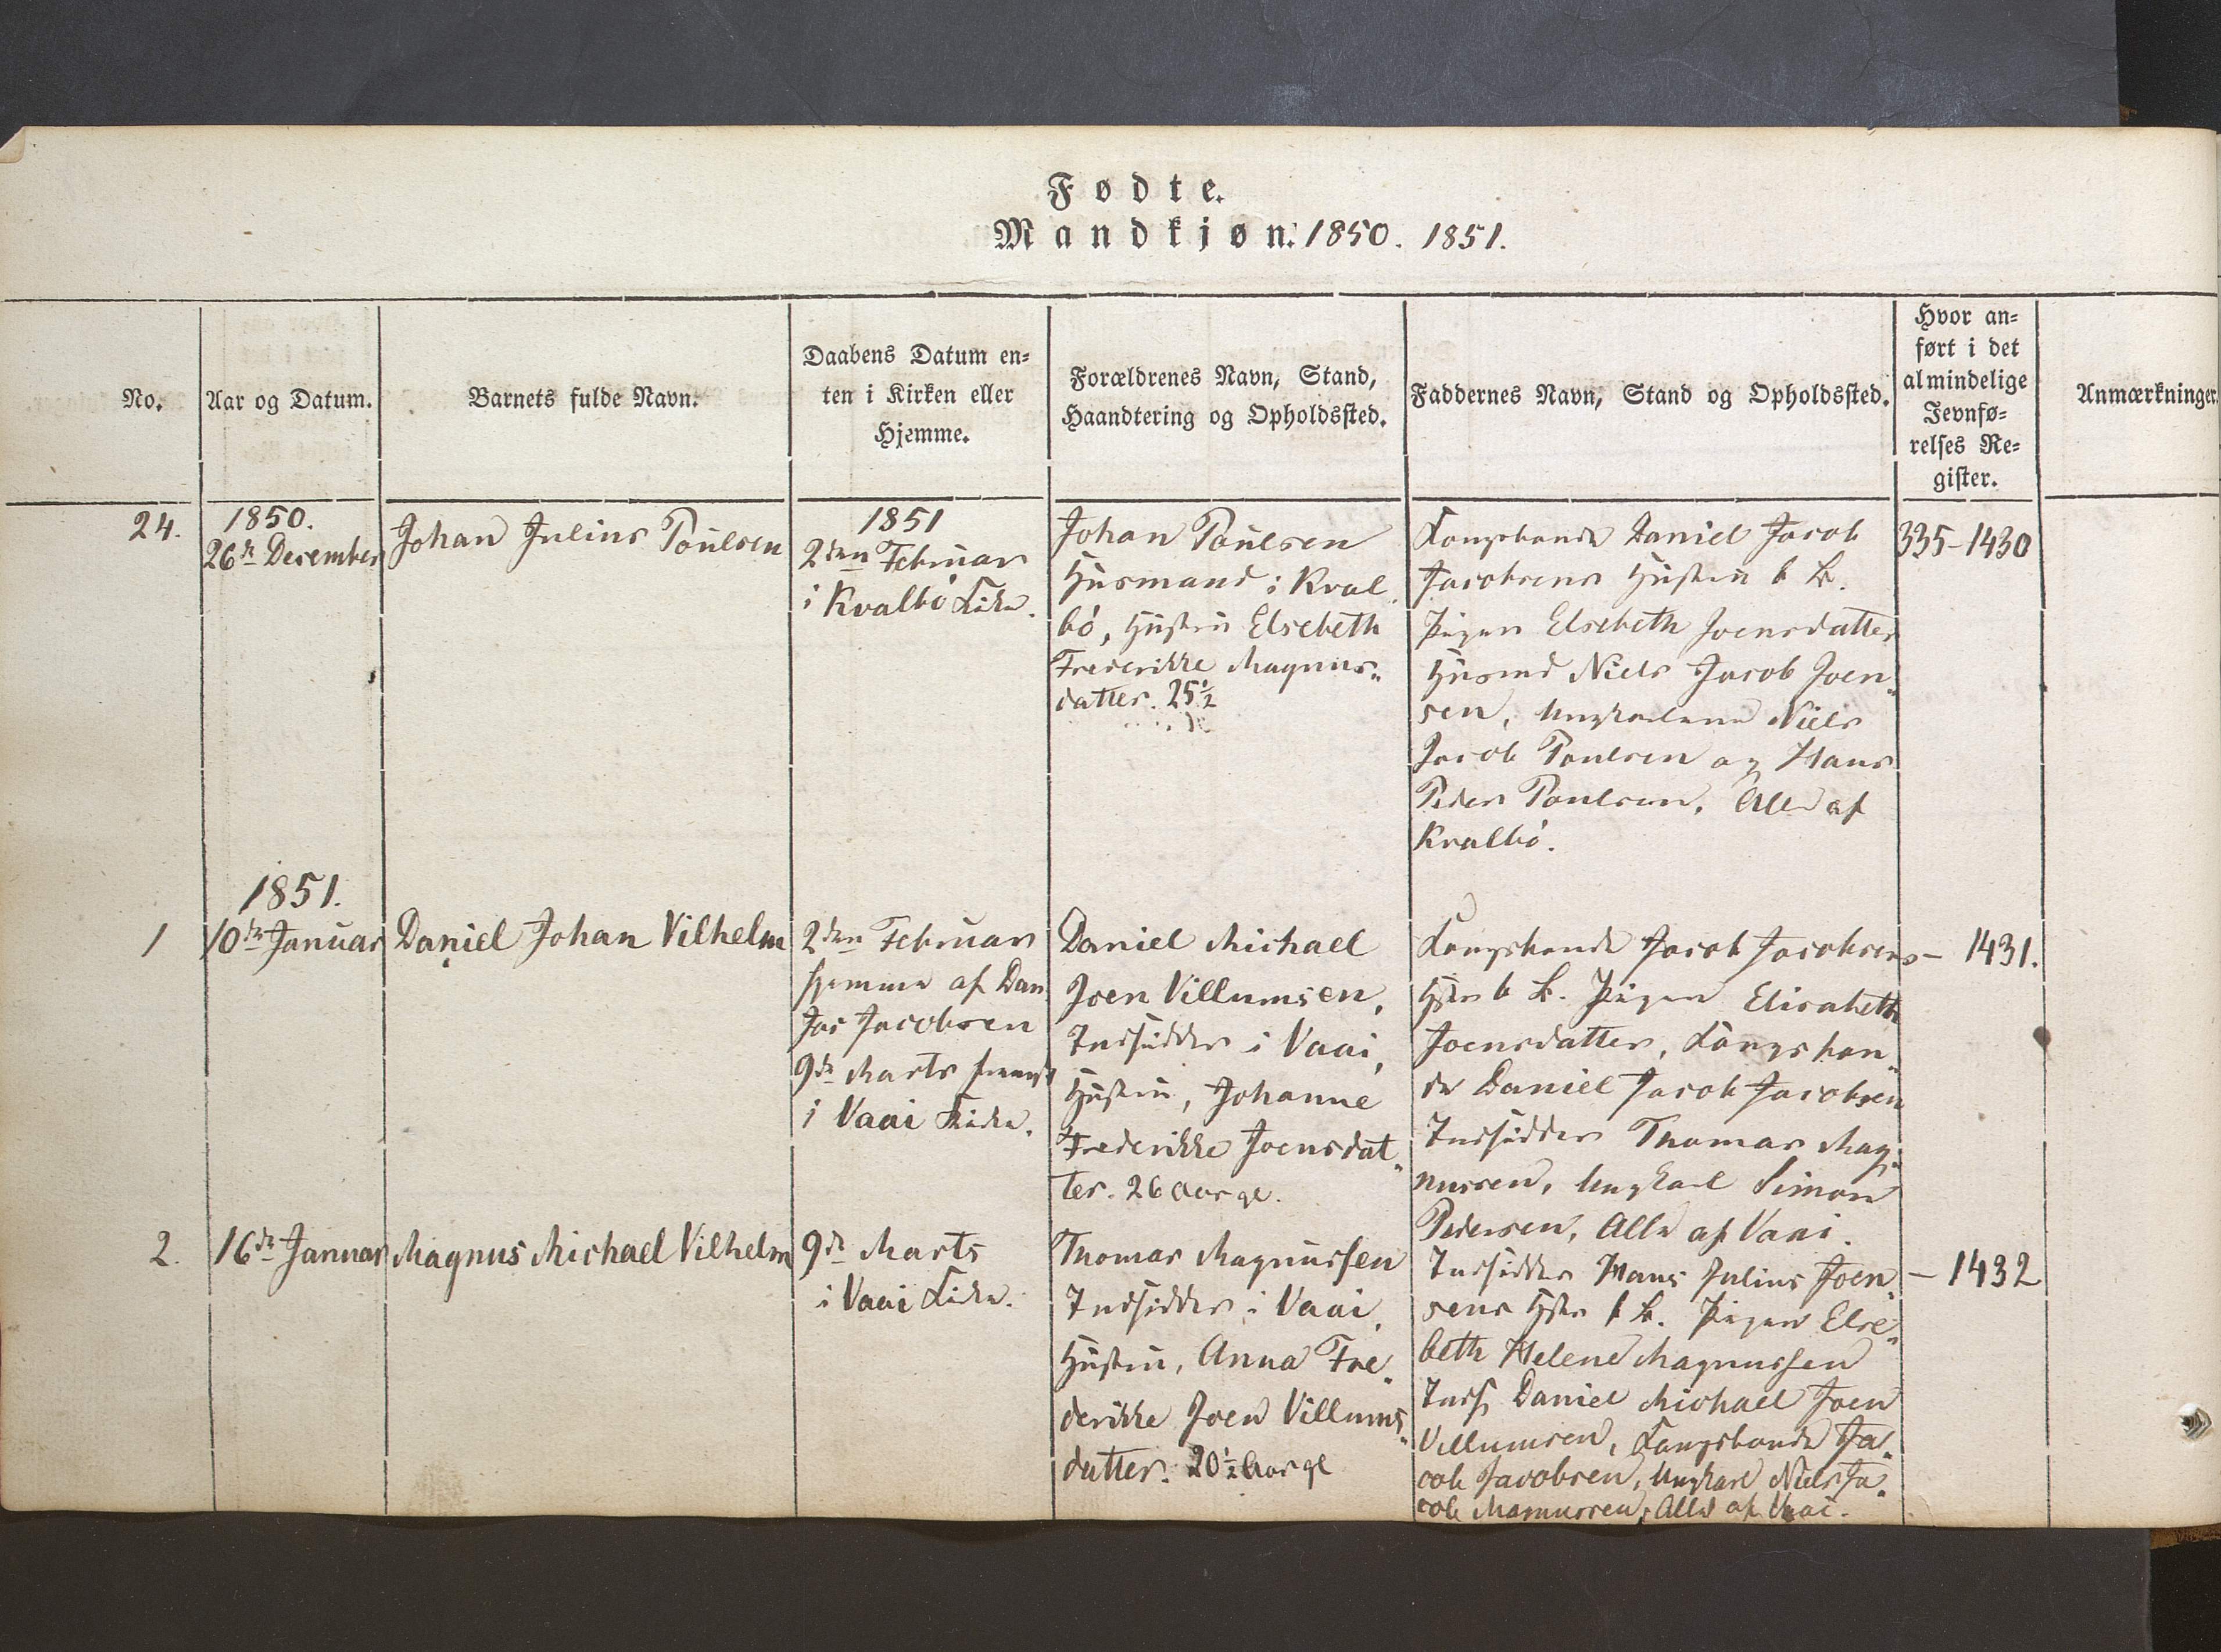 Fødte.
Mandkjøn. 1850. 1851.
No.
Aar og Datum.
Barnets fulde Navn.
Daabens Datum en-
ten i Kirken eller
Hjemme.
Forældrenes Navn, Stand,
Haandtering og Opholdssted.
Faddernes Navn, Stand og Opholdssted.
Hvor an-
ført i det
almindelige
Jevnfø-
relses Re-
gister.
Anmærkninger.
24.
1850.
26de December
Johan Julius Poulsen
1851
2den Februar
i Kvalbö Kirke.
Johan Poulsen
Huusmand i Kval
bö, Hustru Elsebeth
Frederikke Magnus„
datter. 25½
Kongsbonde Daniel Jacob
Jacobsens Hustru b. B.
Pigen Elsebeth Joensdatter
Huusmd Niels Jacob Joen„
sen, Ungkarlene Niels
Jacob Poulsen og Hans
Peder Poulsen, Alle af
Kvalbö.
335-1430
1851.
1
10de Januar
Daniel Johan Vilhelm
2den Februar
hjemme af Dan
Jac Jacobsen
9de Marts fremst
i Vaai Kirke.
Daniel Michael
Joen Villumsen,
Indsidder i Vaai,
Hustru, Johanne
Frederikke Joensdat„
ter. 26 Aar gl.
Kongsbonde Jacob Jacobsens
Hstr b. B. Pigen Elisabeth
Joensdatter, Kongsbon„
de Daniel Jacob Jacobsen
Indsidder Thomas Mag„
nussen, Ungkarl Simon
Pedersen, Alle af Vaai.
- 1431.
2.
16de Januar
Magnus Michael Vilhelm
9de Marts
i Vaai Kirke.
Thomas Magnussen
Indsidder i Vaai,
Hustru, Anna Fre„
derikke Joen Villums„
datter. 20½ Aar gl
Indsidder Hans Julius Joen„
sens Hstr b. B. Pigen Else„
beth Helene Magnussen
Inds. Daniel Michael Joen
Villumsen, Kongsbonde Ja„
cob Jacobsen, Ungkarl Niels Ja„
cob Magnussen, Alle af Vaai.
- 1432